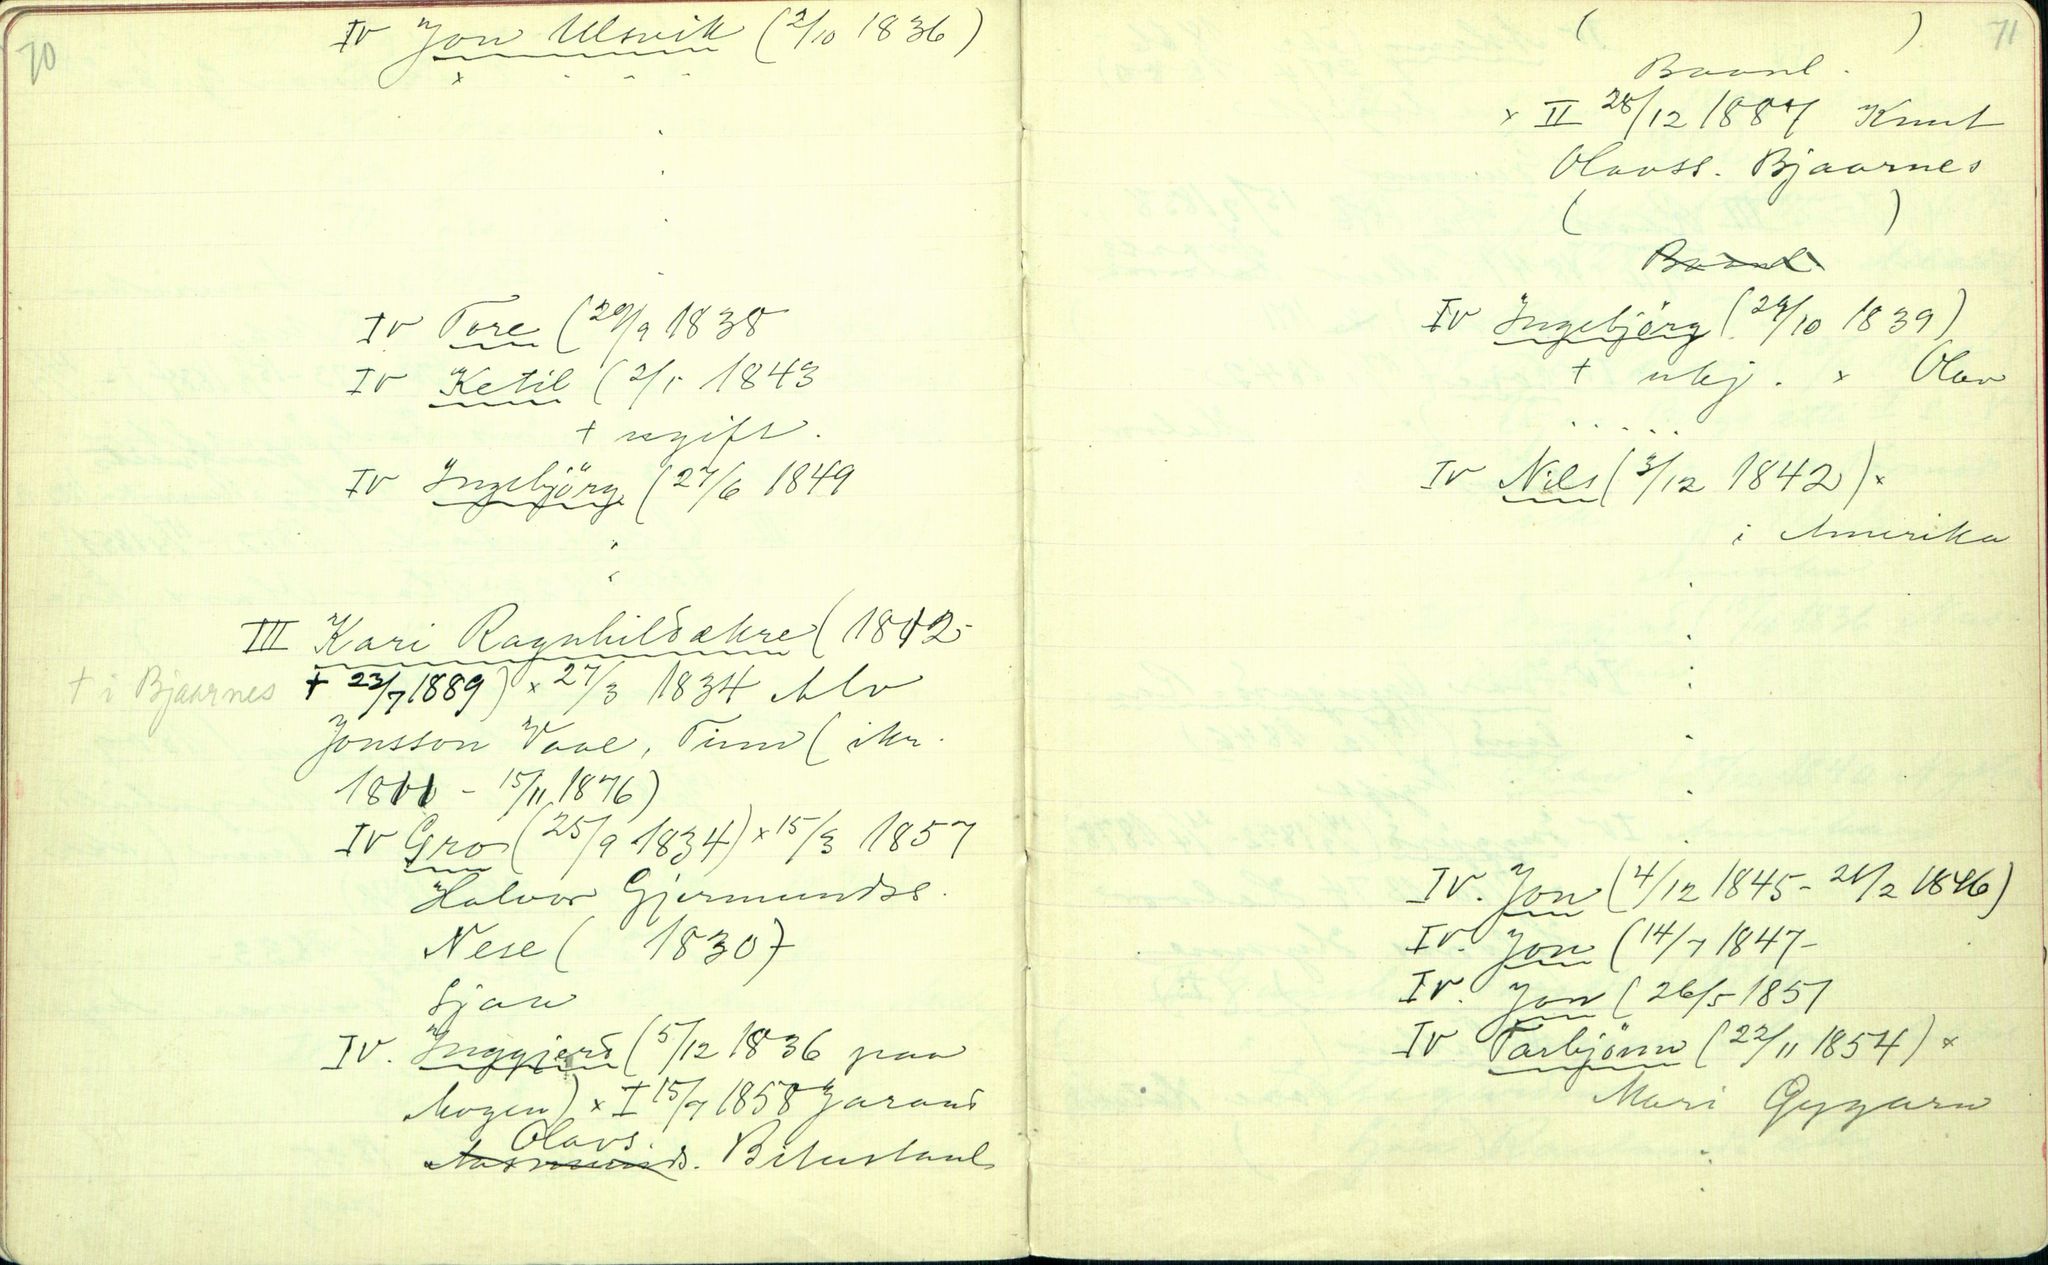 70
IV Jon Ulsvik (2/10 1836)
x . - -
IV Tore (20/9 1838
IV Ketil (2/5 1843
+ ugift.
IV Ingebjörg (27/6 1849
III Kari Ragnhildsakre (1812-
+ i Bjaarnes + 23/7 1889) x 27/3 1834 Alv
Jonsson Vaae, Tinn (ikr.
1811 - 15/11 1876)
IV Gro (25/9 1834) x 15/3 1857
Halvor Gjermundss.
Nese ( 1830)
Sjaa
IV. Inggjerd (5/12 1836 paa
Mogen) x I 15/7 1858 Jarand
Olavs.
Aasmunds. Bitustaul
71
( )
Baanl.
x II 28/12 1887 Knut
Olavss. Bjaarnes
( )
Baanl
IV Ingebjörg (29/10 1839)
+ ukj. x Olav
. . . . .
IV Nils (3/12 1842) x
i Amerika
IV. Jon (4/12 1845 - 21/2 1846)
IV. Jon (14/7 1847-
IV. Jon (26/5 1851
IV Tarbjönn (22/11 1854) x
Mari Gygarn